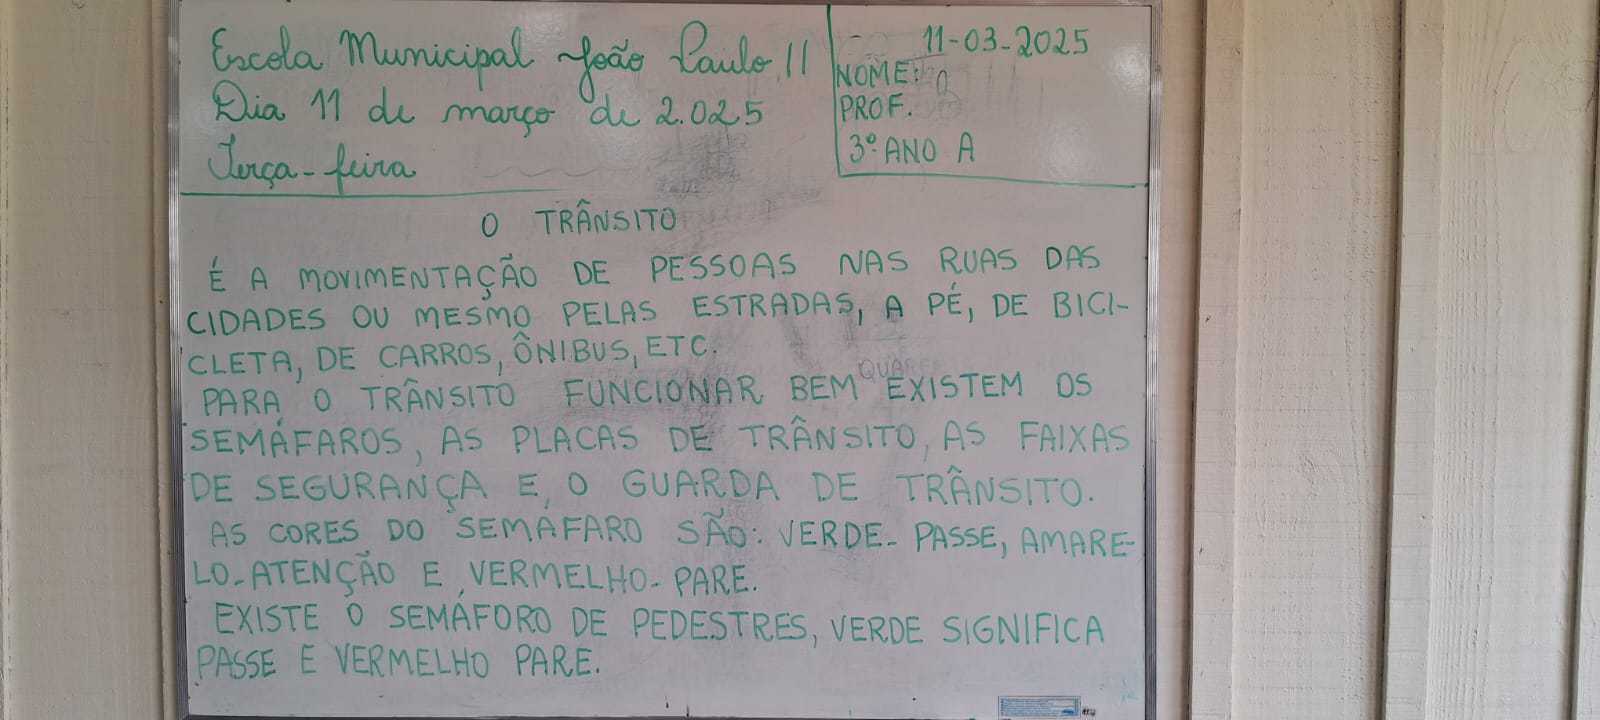 Escola Municipal João Paulo II
Dia 11 de março de 2.025
Terça-feira
11-03-2025
NOME:
PROF.
3º ANO A
O TRÂNSITO
É A MOVIMENTAÇÃO DE PESSOAS NAS RUAS DAS
CIDADES OU MESMO PELAS ESTRADAS, A PÉ, DE BICI-
CLETA, DE CARROS, ÔNIBUS, ETC.
PARA O TRÂNSITO FUNCIONAR BEM EXISTEM OS
SEMÁFAROS, AS PLACAS DE TRÂNSITO, AS FAIXAS
DE SEGURANÇA E O GUARDA DE TRÂNSITO.
AS CORES DO SEMÁFARO SÃO: VERDE- PASSE, AMARE-
LO-ATENÇÃO E VERMELHO-PARE.
EXISTE O SEMÁFORO DE PEDESTRES, VERDE SIGNIFICA
PASSE E VERMELHO PARE.